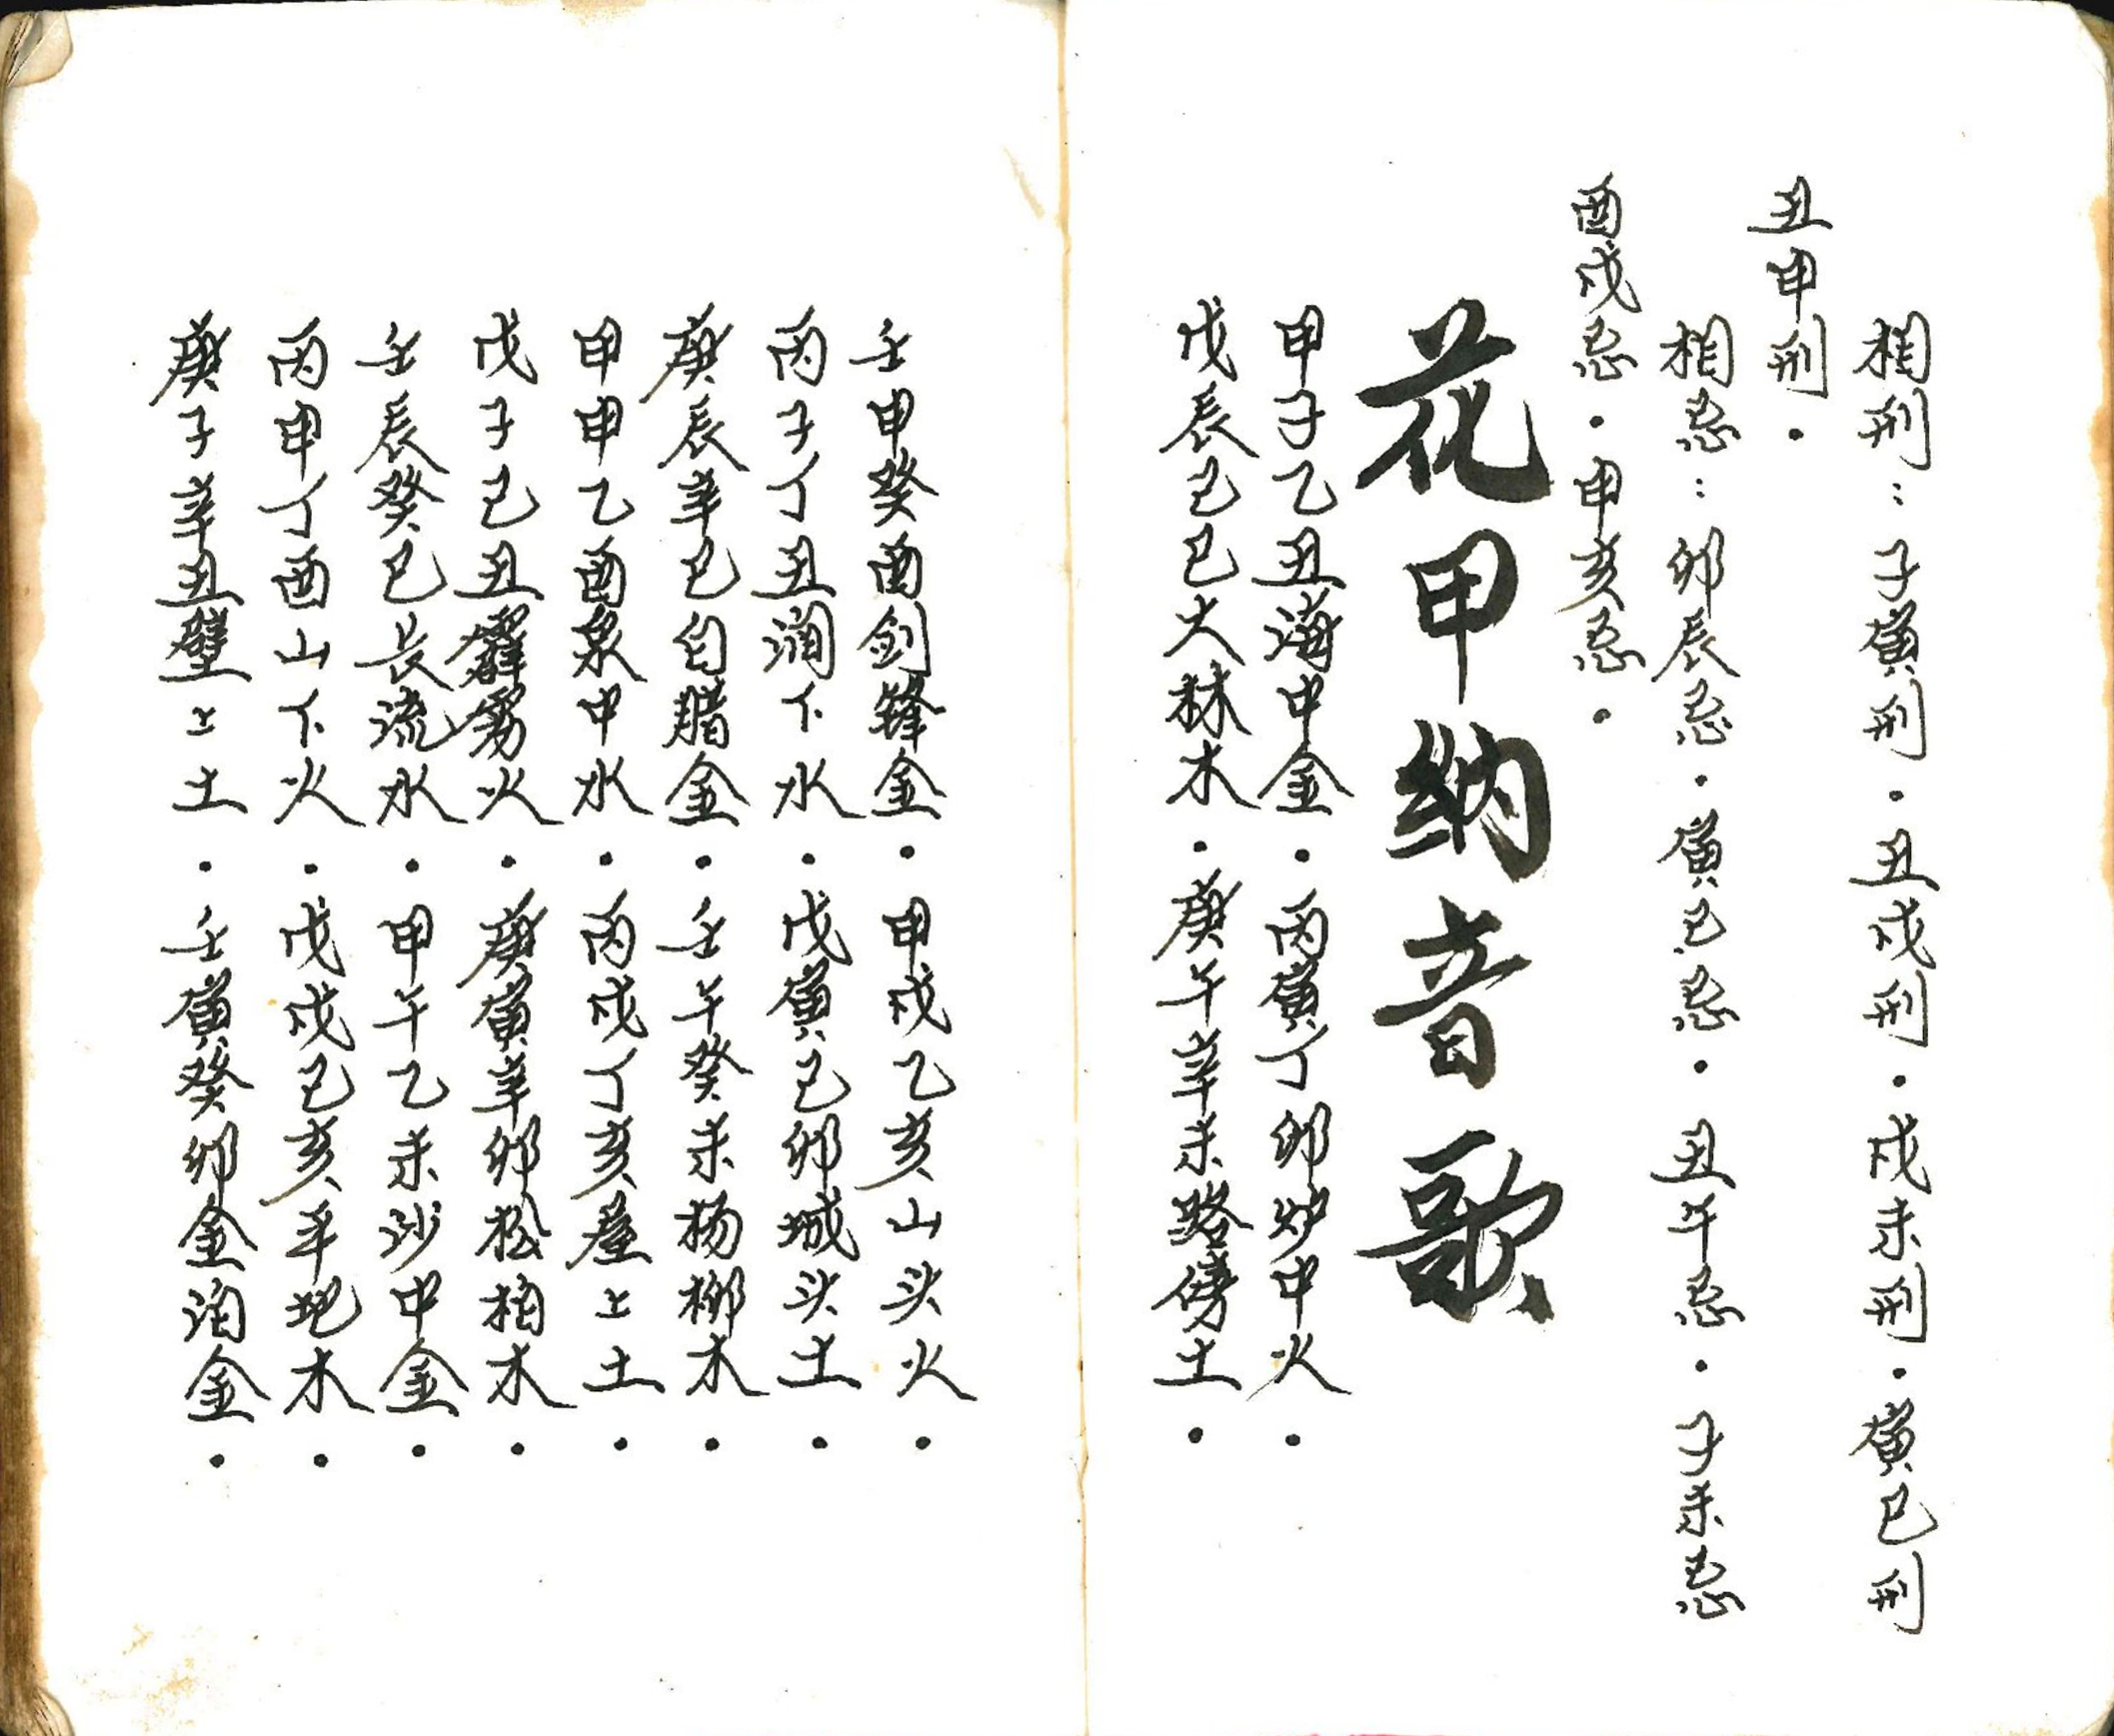 相刑：子寅刑．丑戌刑．戌未刑．寅巳刑
丑申刑．
相忌：卯辰忌．寅巳忌．丑午忌．子未忌
酉戌忌．申亥忌．
花甲纳音歌
甲子乙丑海中金．丙寅丁卯炉中火．
戊辰己巳大林木．庚午辛未路傍土．
壬申癸酉剑锋金．甲戌乙亥山头火．
丙子丁丑涧下水．戊寅己卯城头土．
庚辰辛巳白腊金．壬午癸未杨柳木．
甲申乙酉泉中水．丙戌丁亥屋上土．
戊子己丑霹雳火．庚寅辛卯松柏木．
壬辰癸巳长流水．甲午乙未沙中金．
丙申丁酉山下火．戊戌己亥平地木．
庚子辛丑壁上土．壬寅癸卯金泊金．